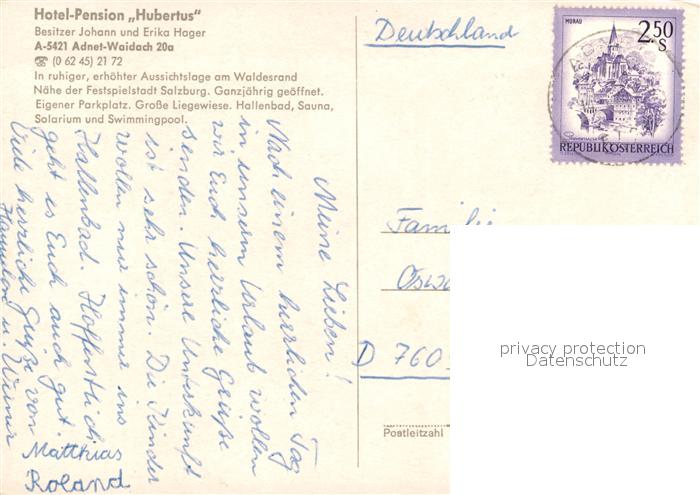 Hotel-Pension „Hubertus“
Besitzer Johann und Erika Hager
A-5421 Adnet-Waidach 20a
☎ (0 62 45) 21 72
In ruhiger, erhöhter Aussichtslage am Waldesrand
Nähe der Festspielstadt Salzburg. Ganzjährig geöffnet.
Eigener Parkplatz. Große Liegewiese. Hallenbad, Sauna,
Solarium und Swimmingpool.
Meine Lieben!
Nach einem herrlichen Tag
in unserm Urlaub wollen
wir Euch herrliche Grüße
senden. Unsere Unterkunft
ist sehr schön. Die Kinder
wollen nur immer ins
Hallenbad. Hoffentlich
geht es Euch auch gut.
Viele herzliche Grüße von
u. Werner
Matthias
Roland
Deutschland
MURAU
2.50
S
REPUBLIK ÖSTERREICH
Familie
Osw
D 760
privacy protection
Datenschutz
Postleitzahl